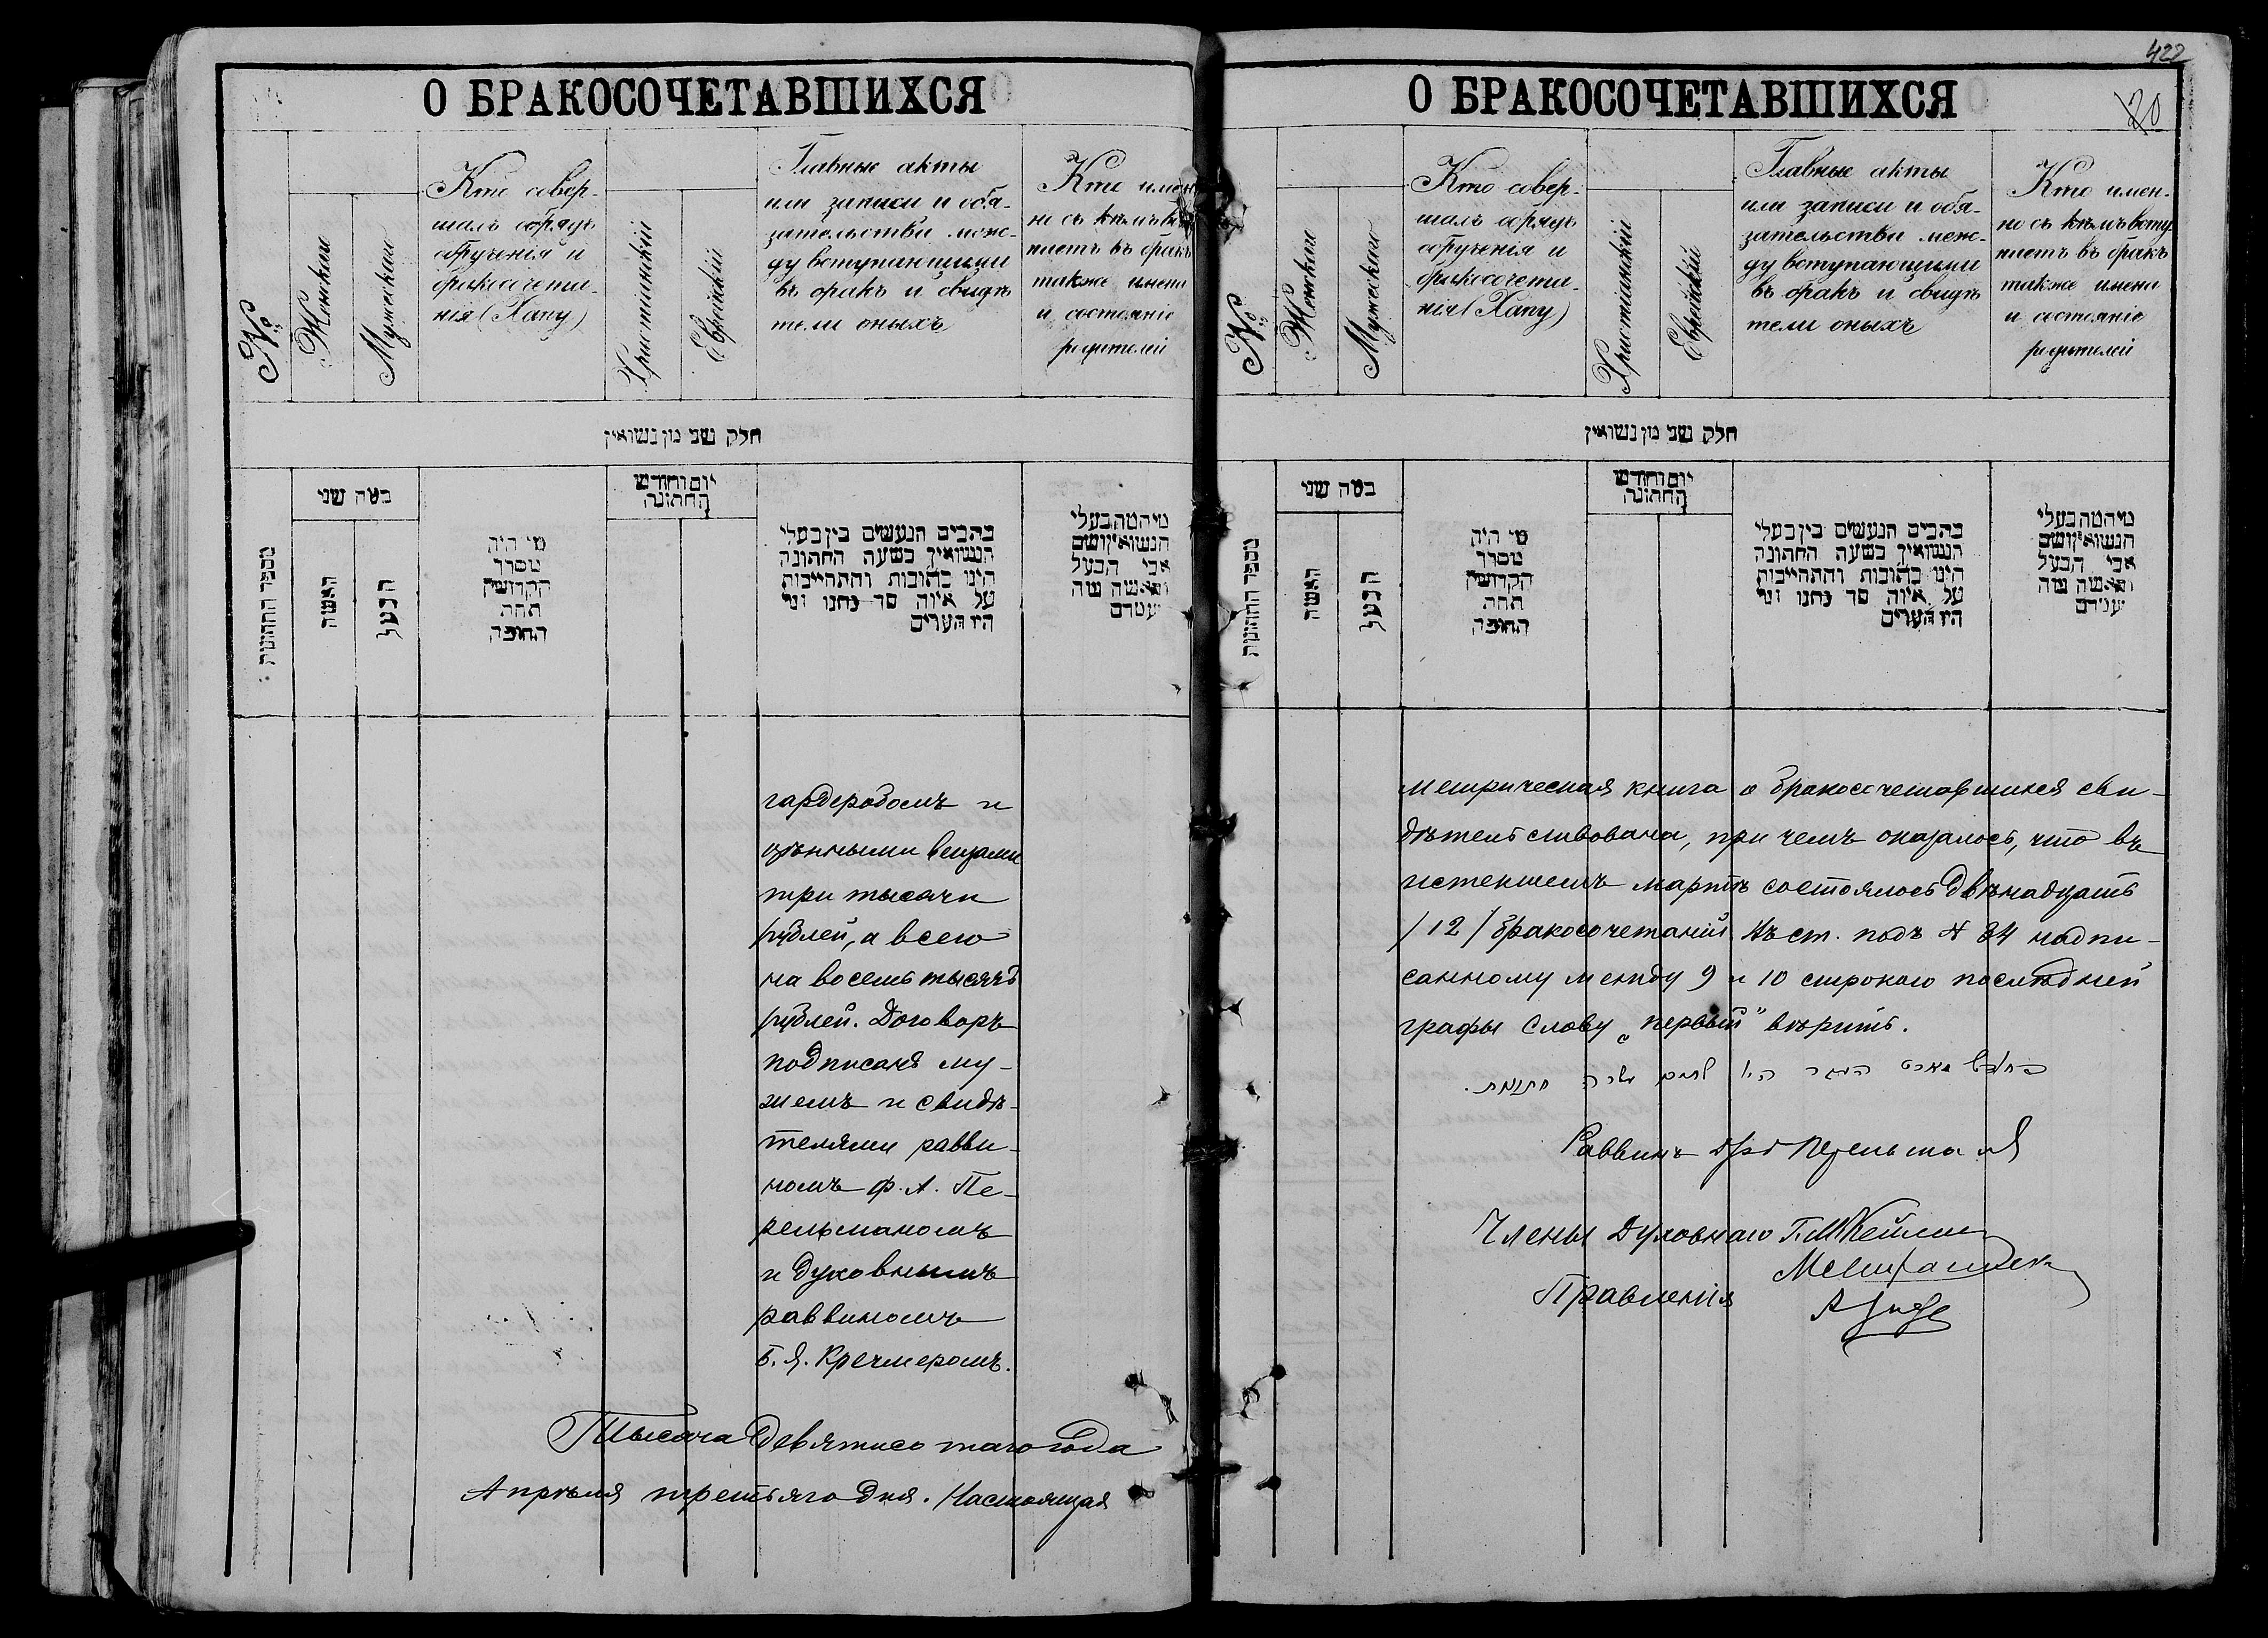 О БРАКОСОЧЕТАВШИХСЯ
№
Женскаго
Мужескаго
Кто совер-
шалъ обрядъ
обрученія и
бракосочета-
нія (Хапу)
Христіанскій
Еврейскій
Главные акты
или записи и обя-
зательства меж-
ду вступающими
въ бракъ и свидѣ
тели оныхъ
Кто имен
но съ кѣмъ всту
паетъ въ бракъ
также имена
и состояніе
родителей
חלק שני מן נשואין
מספר החתונות
כמה שני
האשה
הבעל
מי היה
מסדר
הקדושין
תחת
החופה
יום וחודש
החתונה
כתבים הנעשים בין בעלי
הנשואין בשעה החתונה
היינו כתובות והתחייבות
על איזה סך נתנו ומי
היו העדים
מיהמה בעלי
הנשואין ושם
אבי הבעל
והאשה ומה
гардеробомъ и
цѣнными вещами
три тысячи
рублей, а всего
на восемь тысячъ
рублей. Договоръ
подписанъ му-
жемъ и свидѣ-
телями равви-
номъ Ф. А. Пе-
рельманомъ
и духовнымъ
раввиномъ
Б. Я. Кречмеромъ.
Тысяча девятисотаго года
Апрѣля третьяго дня. Настоящая
422
20
О БРАКОСОЧЕТАВШИХСЯ
№
Женскаго
Мужескаго
Кто совер-
шалъ обрядъ
обрученія и
бракосочета-
нія (Хапу)
Христіанскій
Еврейскій
Главные акты
или записи и обя-
зательства меж-
ду вступающими
въ бракъ и свидѣ
тели оныхъ
Кто имен-
но съ кѣмъ всту
паетъ въ бракъ
также имена
и состояніе
родителей
חלק שני מן נשואין
מספר החתונות
כמה שני
האשה
הבעל
מי היה
מסדר
הקדושין
תחת
החופה
יום וחודש
החתונה
כתבים הנעשים בין בעלי
הנשואין בשעה החתונה
היינו כתובות והתחייבות
על איזה סך נתנו ומי
היו העדים
מיהמה בעלי
הנשואין ושם
אבי הבעל
והאשה ומה
метрическая книга о бракосочетавшихся сви-
дѣтельствована, при чемъ оказалось, что въ
истекшемъ мартѣ состоялось двѣнадцать
/12/ бракосочетаній. Къ ст. подъ № 34 надпи-
санному между 9 и 10 строкою послѣдней
графы слову „первый" вѣрить.
בחודש מארט העבר היו שתים עשרה חתונות.
Раввинъ Перельманъ
Члены Духовнаго
Правленія